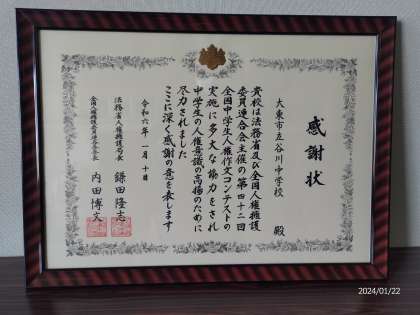 感謝状
大東市立谷川中学校 殿
貴校は法務省及び全国人権擁護
委員連合会主催の第四十二回
全国中学生人権作文コンテストの
実施に多大な協力をされ
中学生の人権意識の高揚のために
尽力されました
ここに深く感謝の意を表します
令和六年 一月 十日
法務省人権擁護局長 鎌田隆志
全国人権擁護委員連合会会長 内田博文
2024/01/22